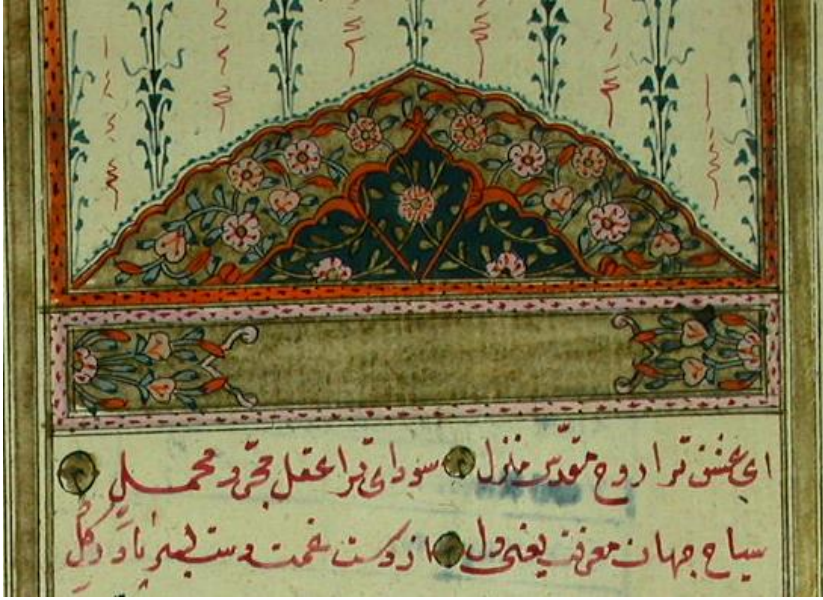 ای عشق ترا روح مقدّس منزل سودای ترا عقل مجرّد محمل
سیاح جهان معرفت یعنی دل از دست غمت دست بسر پا در گل